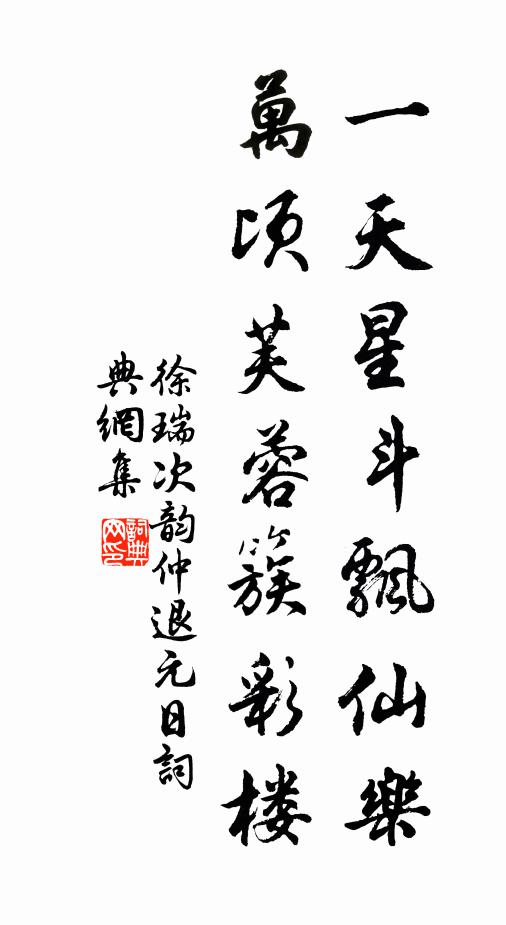 一天星斗飄仙樂
萬頃芙蓉簇彩楼
徐瑞次韵仲退元日詞
典網集
詞典網印